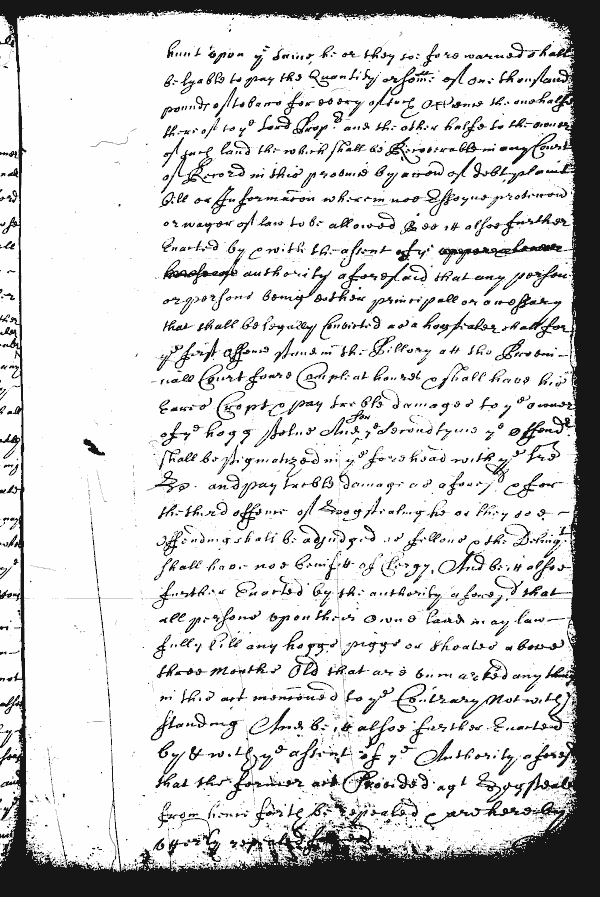 hunt upon ye Same, he or they soe forewarned shall
be lyable to pay the Quantity or some of one thousand
pounds of tobacco for every of such Offence the one halfe
thereof to ye Lord Propry and the other halfe to the owner
of such land the which shall be Recoverable in any Court
of Record in this province by accon of debt plaint
bill or Informacon wherein noe Essoyne proteccon
or wager of law to be allowed Bee it alsoe further
Enacted by & with the assent of ye
authority aforesaid that any person
or persons being either principall or accessary
that shall be legally Convicted as a hogstealer shall for
ye first offence stand in the Pillory att the Provin-
-ciall Court foure Compleat houres & shall have his
Eares Cropt & pay treble damages to ye owner
of ye hogg stolne And for ye second tyme ye Offendr
shall be stigmatized in ye forehead with ye tre
H. and pay treble damage as aforesd & for
the third offence of Hogstealing he or they soe
offending shall be adjudged as fellons & the Delinqt
shall have noe benifitt of Clergy, And be it alsoe
further Enacted by the authority aforesd that
all persons upon their Owne land may law-
fully kill any hoggs piggs or shoates above
three Months Old that are unmarked any thing
in this act mencioned to ye Contrary Notwith
standing And be it alsoe further Enacted
by & with ye assent of ye Authority aforesd
that the former act Provided agt Hoggsteal
from hence forth be repealed & are hereby
utterly repealed